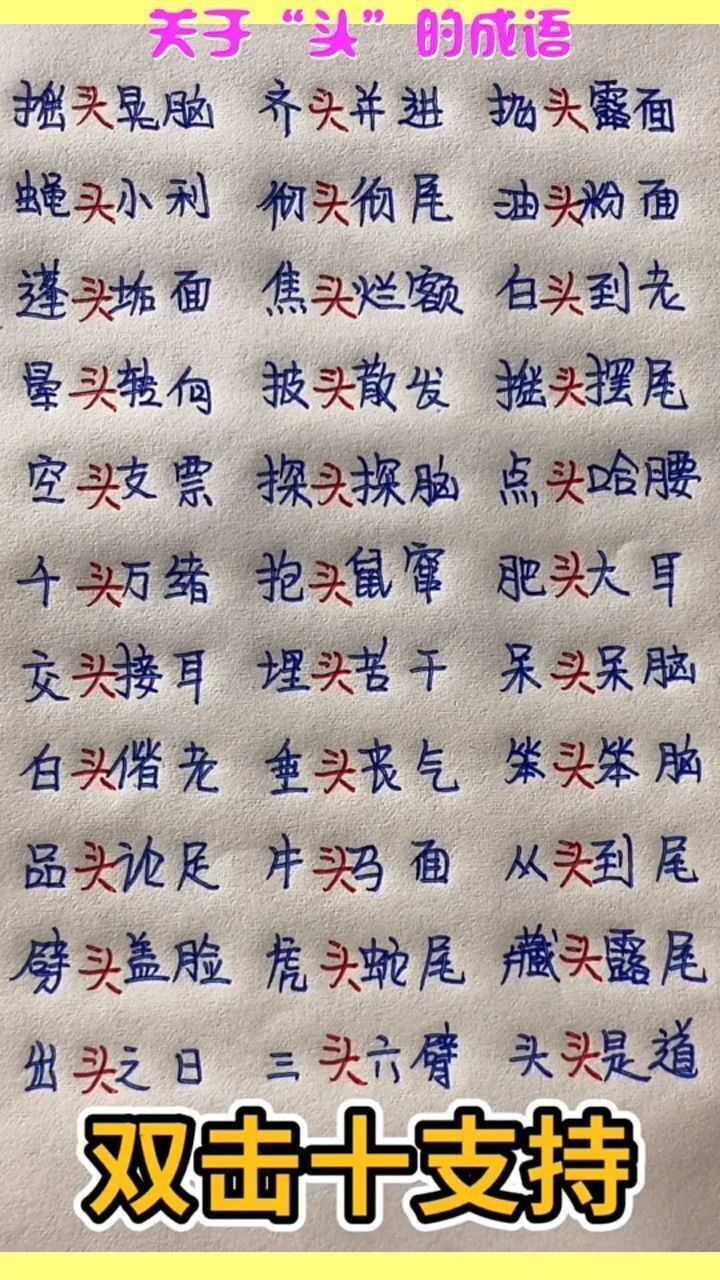 关于“头”的成语
摇头晃脑 齐头并进 抛头露面
蝇头小利 彻头彻尾 油头粉面
蓬头垢面 焦头烂额 白头到老
晕头转向 披头散发 摇头摆尾
空头支票 探头探脑 点头哈腰
千头万绪 抱头鼠窜 肥头大耳
交头接耳 埋头苦干 呆头呆脑
白头偕老 垂头丧气 笨头笨脑
品头论足 牛头马面 从头到尾
劈头盖脸 虎头蛇尾 藏头露尾
出头之日 三头六臂 头头是道
双击十支持